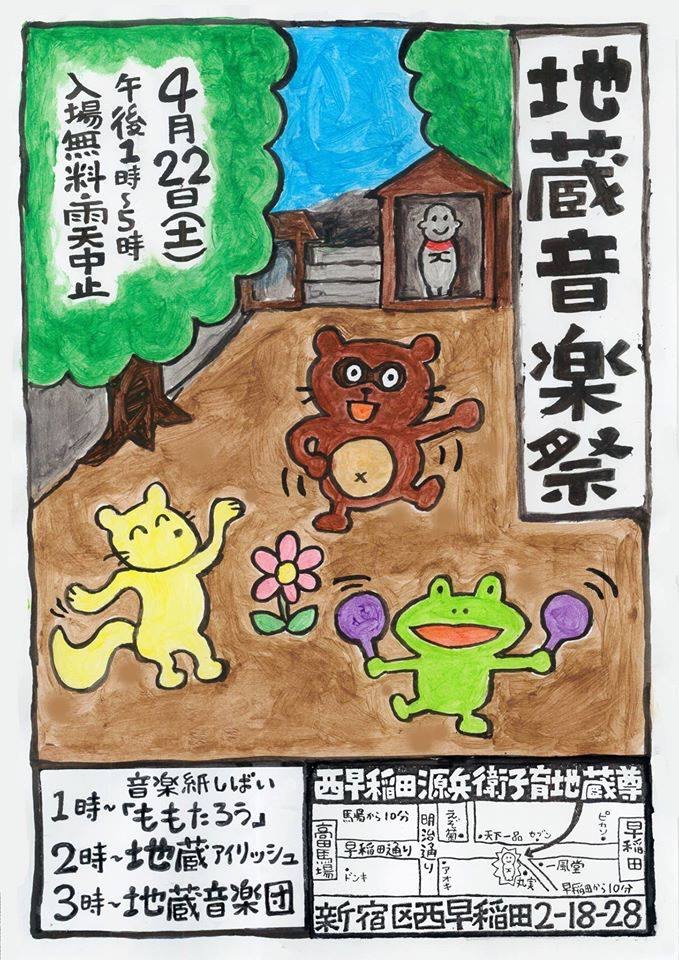 地蔵音楽祭
4月22日(土)
午後1時〜5時
入場無料・雨天中止
音楽紙しばい
1時〜「ももたろう」
2時〜地蔵アイリッシュ
3時〜地蔵音楽団
西早稲田源兵衛子育地蔵尊
馬場から10分
高田馬場
早稲田通り
明治通り
えぞ菊
天下一品
カブン
ピカソ
早稲田
ドンキ
アオキ
丸実
一風堂
早稲田から10分
新宿区西早稲田2-18-28